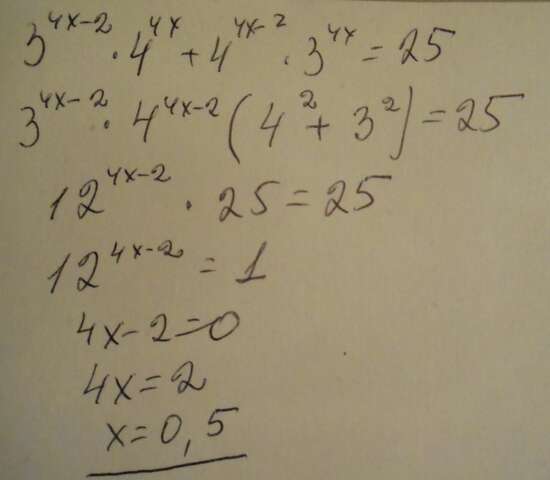 3^{4x-2} · 4^{4x} + 4^{4x-2} · 3^{4x} = 25
3^{4x-2} · 4^{4x-2} (4^2 + 3^2) = 25
12^{4x-2} · 25 = 25
12^{4x-2} = 1
4x-2=0
4x=2
x=0,5